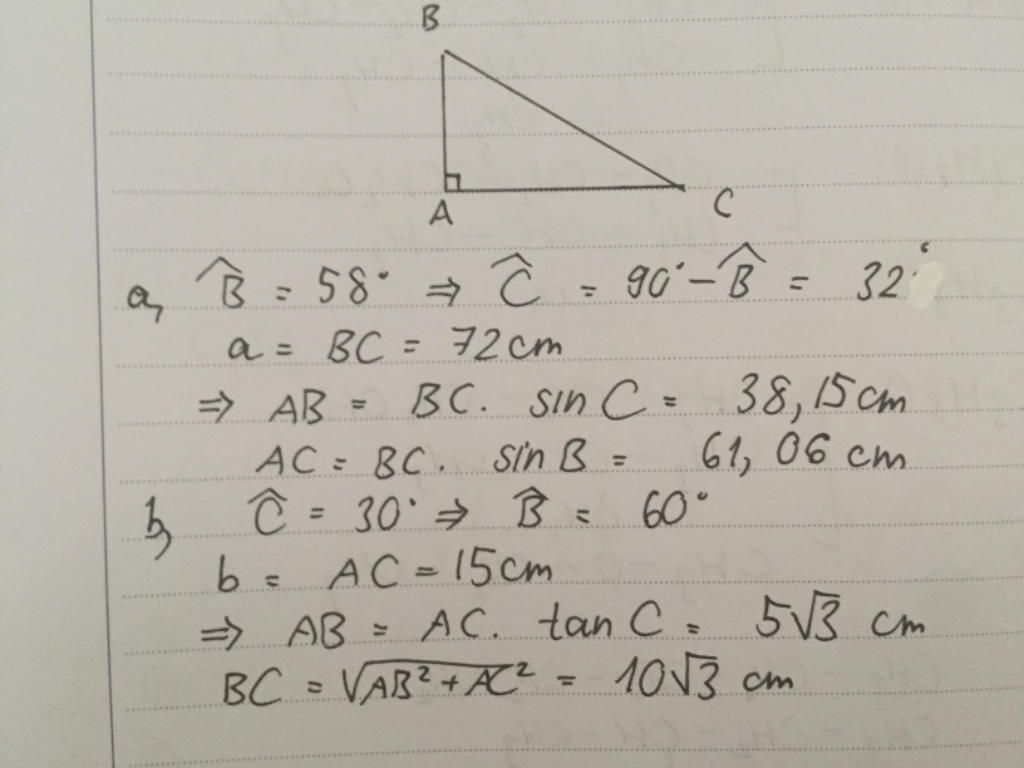 B
A
C
a, B̂ = 58° ⇒ Ĉ = 90° − B̂ = 32°
a = BC = 72 cm
⇒ AB = BC. sin C = 38,15 cm
AC = BC. sin B = 61,06 cm
b, Ĉ = 30° ⇒ B̂ = 60°
b = AC = 15 cm
⇒ AB = AC. tan C = 5√3 cm
BC = √(AB² + AC²) = 10√3 cm